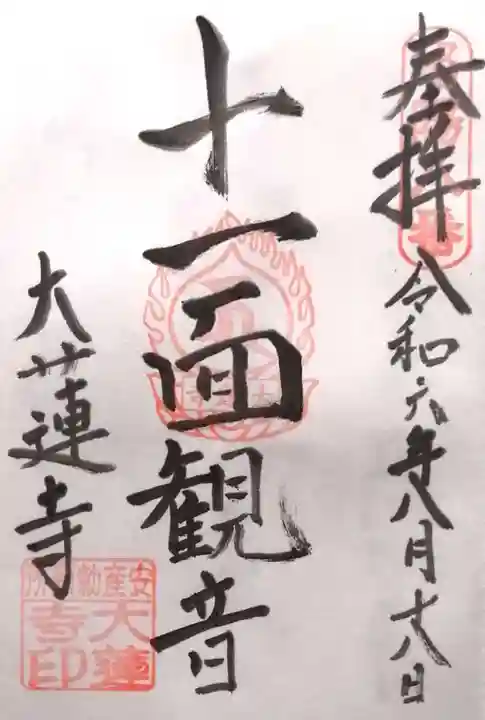 奉拝
令和六年八月十八日
十一面観音
大蓮寺
安産
大蓮
寺印